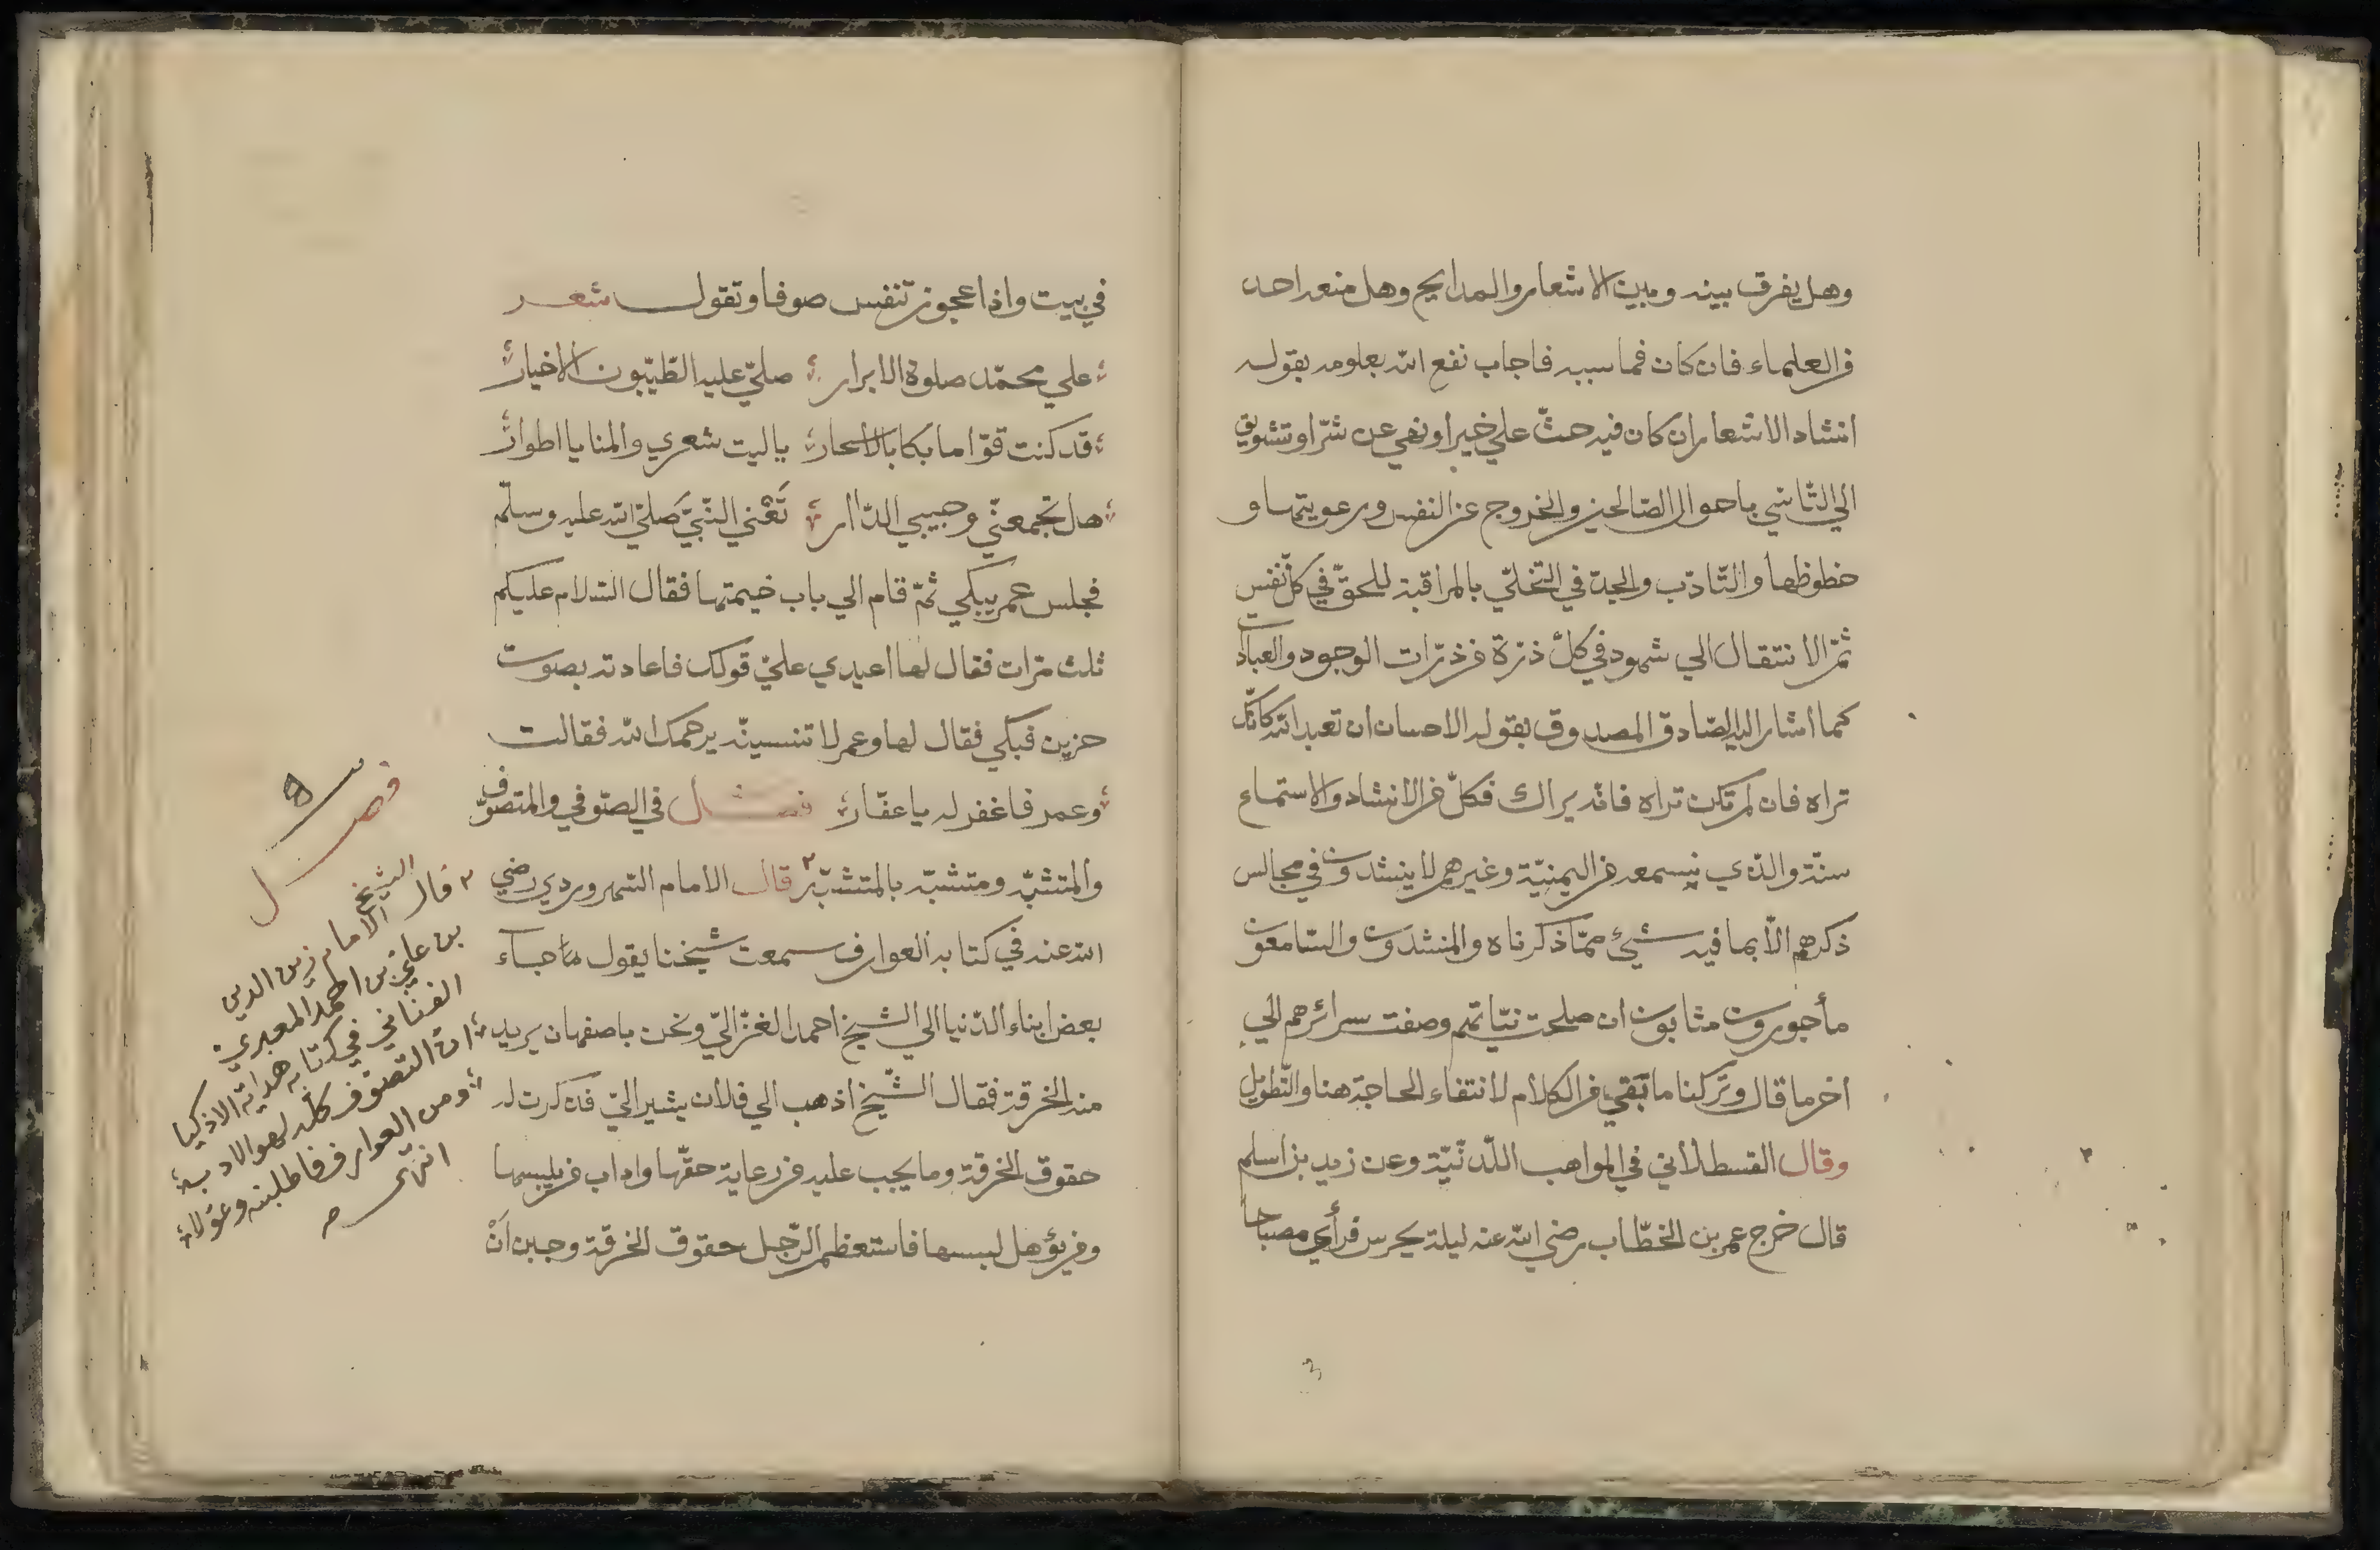 وهل يفرق بينه وبين الاشعار والمدايح وهل منعه احد
من العلماء فان كان فما سببه فاجاب نفع الله بعلومه بقوله
انشاد الاشعار ان كان فيه حثّ علي خير او نهي عن شرّ او تشويق
الي التّاسّي باحوال الصّالحين والخروج عن النفس ورعونتها و
حظوظها والتّادّب والجدّ في التحلّي بالمراقبة للحقّ في كلّ نفس
ثمّ الانتقال الي شهوده في كلّ ذرّة من ذرّات الوجود والعبادات
كما أشار اليه الصّادق المصدوق بقوله الاحسان ان تعبد الله كانّك
تراه فان لم تكن تراه فانّه يراك فكلّ من الانشاد والاستماع
سنّة والّذي نسمعه من اليمنيّة وغيرهم لا ينشدون في مجالس
ذكرهم الّا بما فيه شيئ ممّا ذكرناه والمنشدون والسّامعون
مأجورون مثابون ان صلحت نيّاتهم وصفت سرائرهم الي
اخر ما قال وتركنا ما بقي من الكلام لانتفاء الحاجة هنا والتّطويل
وقال القسطلاني في المواهب اللّدنّيّة وعن زيد بن اسلم
قال خرج عمر بن الخطّاب رضي الله عنه ليلة يحرس فرأي مصباحا
في بيت واذا عجوز تنفس صوفا وتقول شعر
علي محمّد صلوة الابرار صلّي عليه الطّيّبون الاخيار
قد كنت قوّاما بكا بالاسحار ياليت شعري والمنايا اطوار
هل تجمعنّي وحبيبي الدّار تَعْني النّبيّ صلّي الله عليه وسلّم
فجلس عمر يبكي ثمّ قام الي باب خيمتها فقال السّلام عليكم
ثلث مرّات فقال لها اعيدي عليّ قولك فاعادته بصوت
حزين فبكي فقال لها وعمر لا تنسينّه يرحمك الله فقالت
وعمر فاغفر له يا غفّار فصل في الصّوفي والمتصوّف
والمتشبّه ومتشبّه بالمتشبّه ٢ قال الامام السّهروردي رضي
الله عنه في كتابه العوارف سمعت شيخنا يقول جاء
بعض ابناء الدّنيا الي الشيخ احمد الغزّاليّ ونحن باصفهان يريد
منه الخرقة فقال الشّيخ اذهب الي فلان يشير اليّ فذكرت له
حقوق الخرقة وما يجب عليه من رعاية حقّها واداب من يلبسها
ومن يؤهل لبسها فاستعظم الرّجل حقوق الخرقة وجبن انْ
فصل
٢ قال الشيخ
الامام زين الدين
بن علي بن احمد المعبري
الفناني في كتابه هداية الاذكيا
ان التصوف كله لهو الادب
ومن العوارف فاطلبنه وعوّلا
انتهى